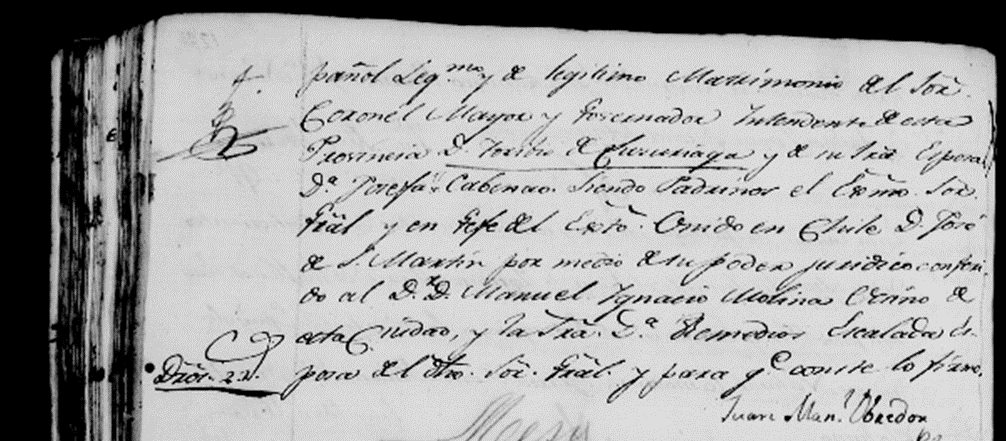 pañol Leg.mo y de legitimo Matrimonio del Sor.
Coronel Mayor y Governador Intendente de esta
Provincia D. Toribio de Luzuriaga y de su Sra. Esposa
Da. Josefa Cabenao. Siendo Padrinos el Exmo. Sor.
Gral y en Gefe del Exto. Unido en Chile D. José
de S. Martin por medio de su poder juridico conferi-
do al D.r D. Manuel Ignacio Molina Vecino de
esta Ciudad, y la Sra. D.a Remedios Escalada Es-
posa del dho. Sor. Gral. y para q.e conste lo firmo.
Dros. 22.
Juan Man.l Obredor